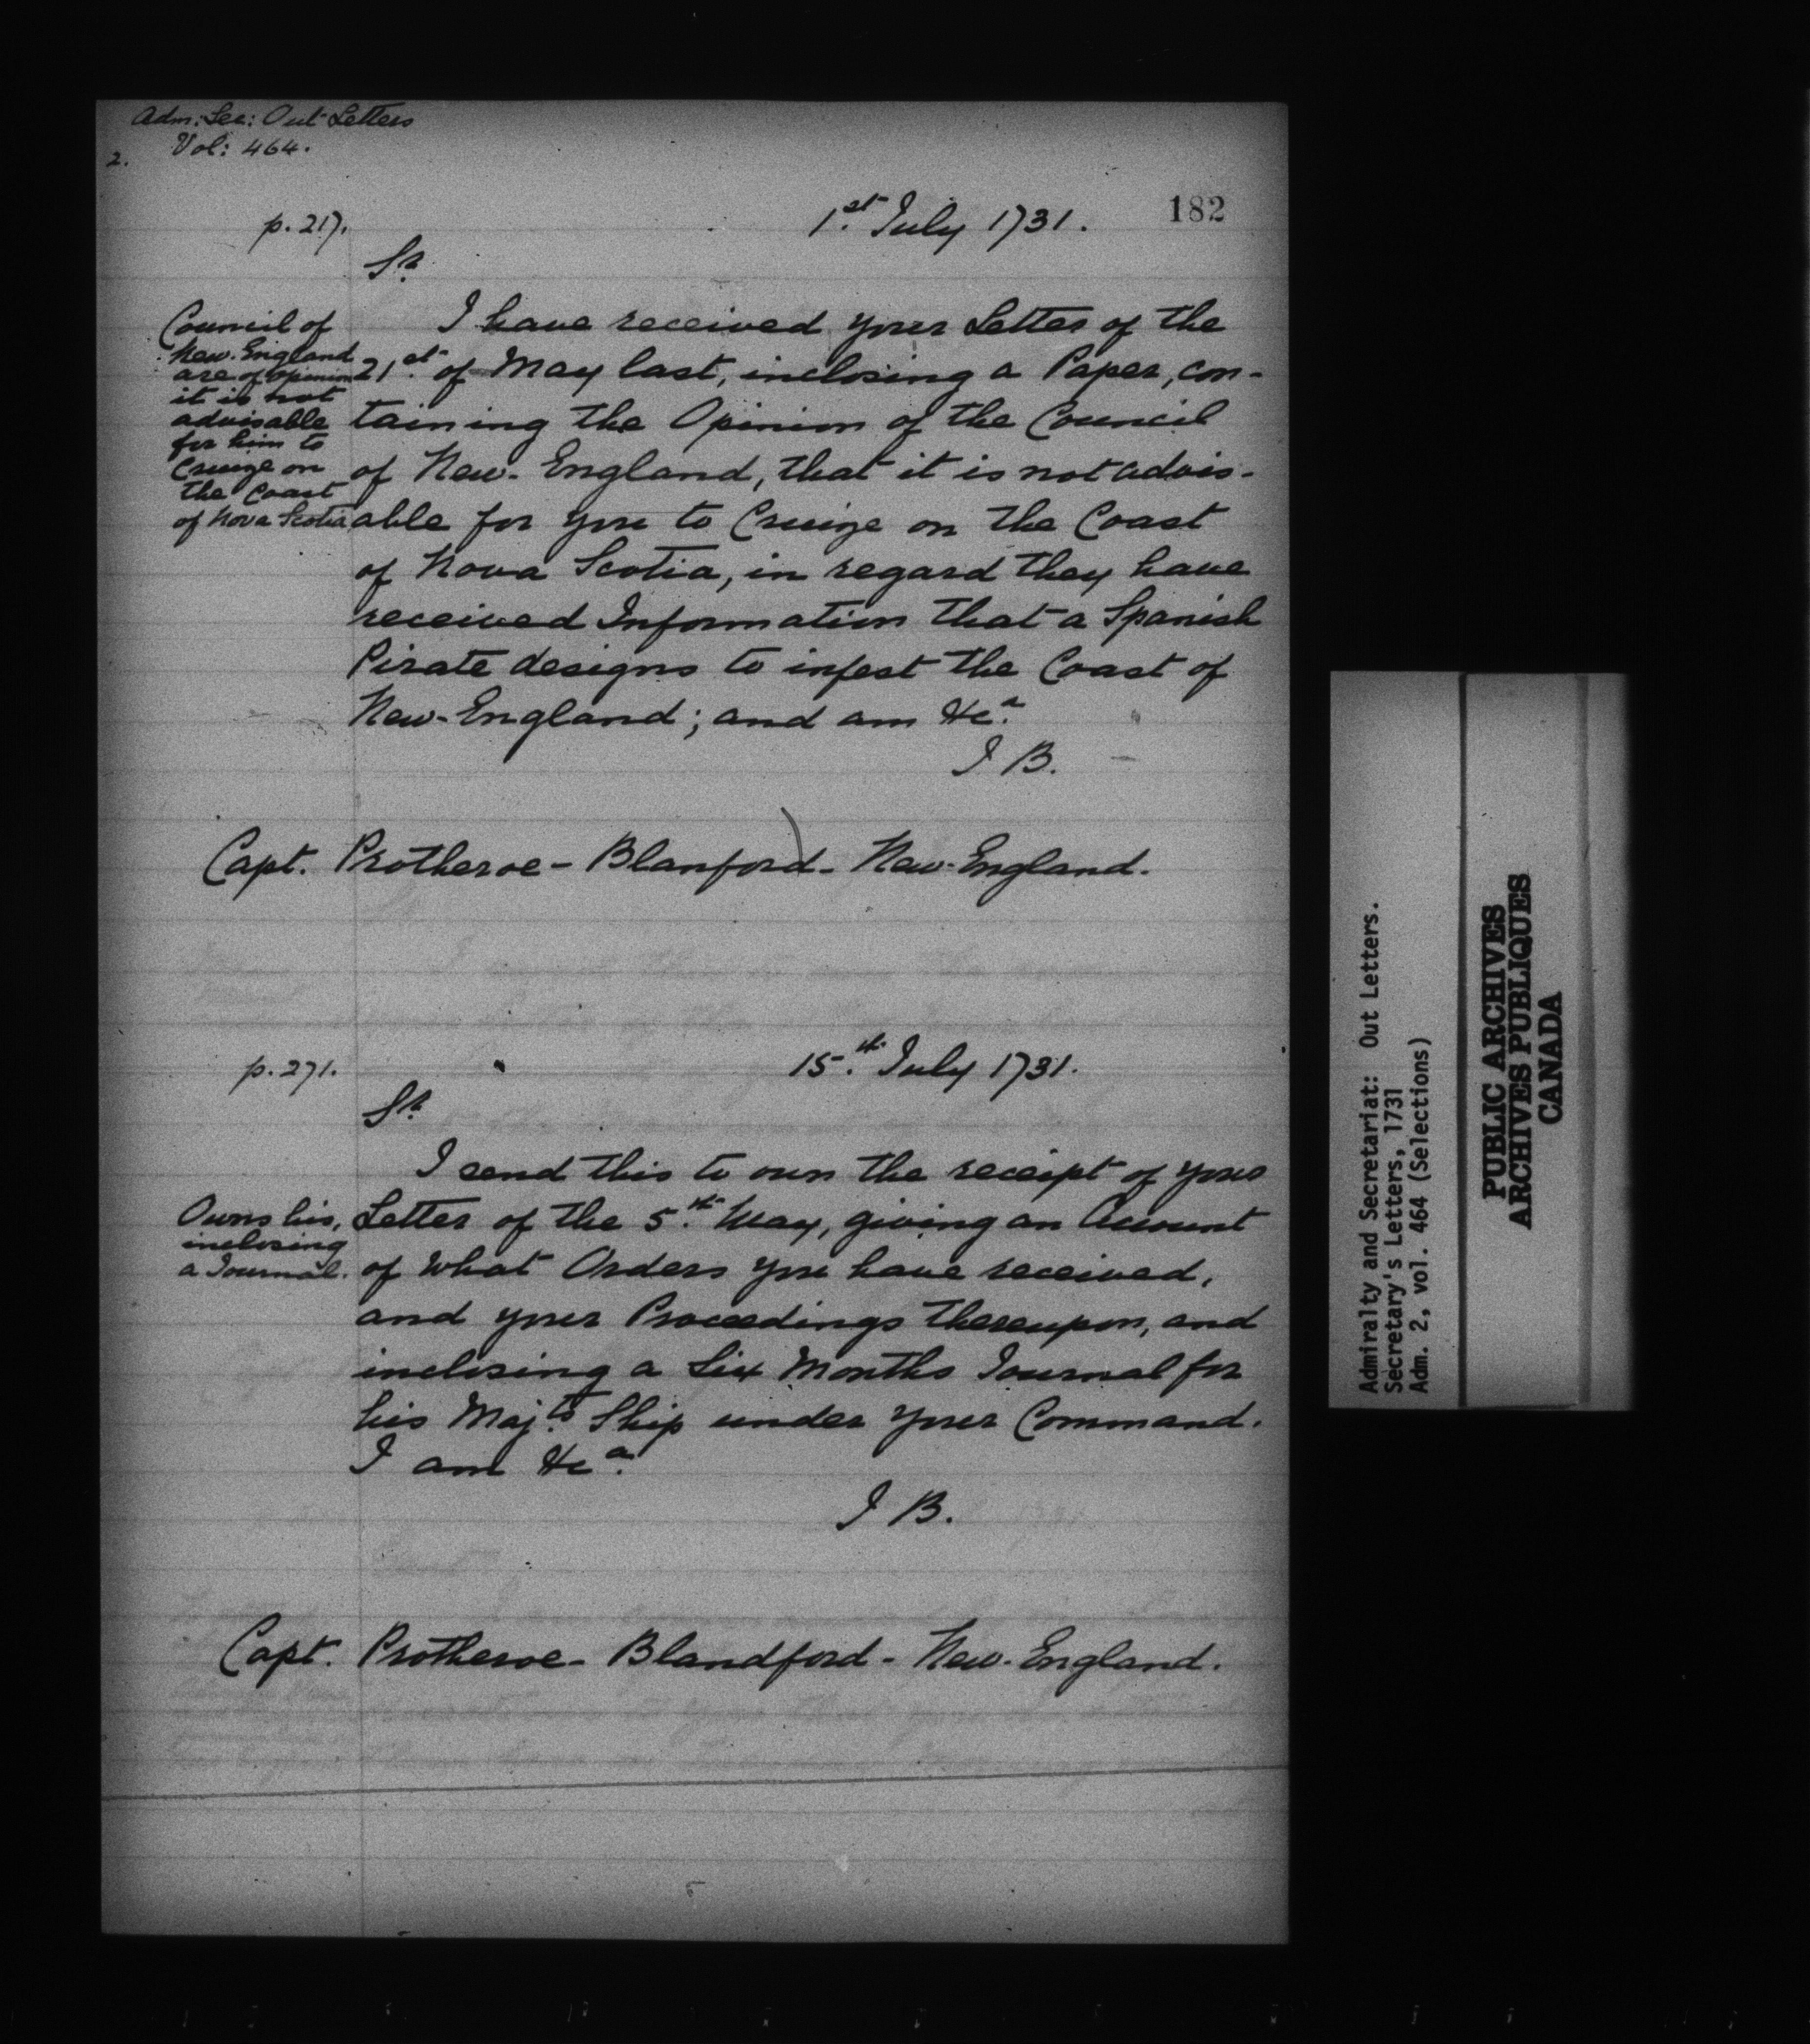 Adm: Sec: Out-Letters
Vol: 464.
2.
182
p. 217.
1st. July 1731.
Sr.
Council of
New. England
are of opinion
it is not
advisable
for him to
Cruize on
the Coast
of Nova Scotia
I have received your Letter of the
21st. of May last, inclosing a Paper, con-
taining the Opinion of the Council
of New-England, that it is not advis-
able for you to Cruize on the Coast
of Nova Scotia, in regard they have
received Information that a Spanish
Pirate designs to infest the Coast of
New-England; and am &ca.
J B.
Capt. Protheroe - Blanford - New-England.
p. 271.
15th. July 1731.
Sr.
Owns his,
inclosing
a Journal.
I send this to own the receipt of your
Letter of the 5th. May, giving an Account
of what Orders you have received,
and your Proceedings thereupon, and
inclosing a Six Months Journal for
his Maj.ts Ship under your Command.
I am &ca.
J B.
Capt. Protheroe - Blandford - New-England.
Admiralty and Secretariat: Out Letters.
Secretary's Letters, 1731
Adm. 2, vol. 464 (Selections)
PUBLIC ARCHIVES
ARCHIVES PUBLIQUES
CANADA